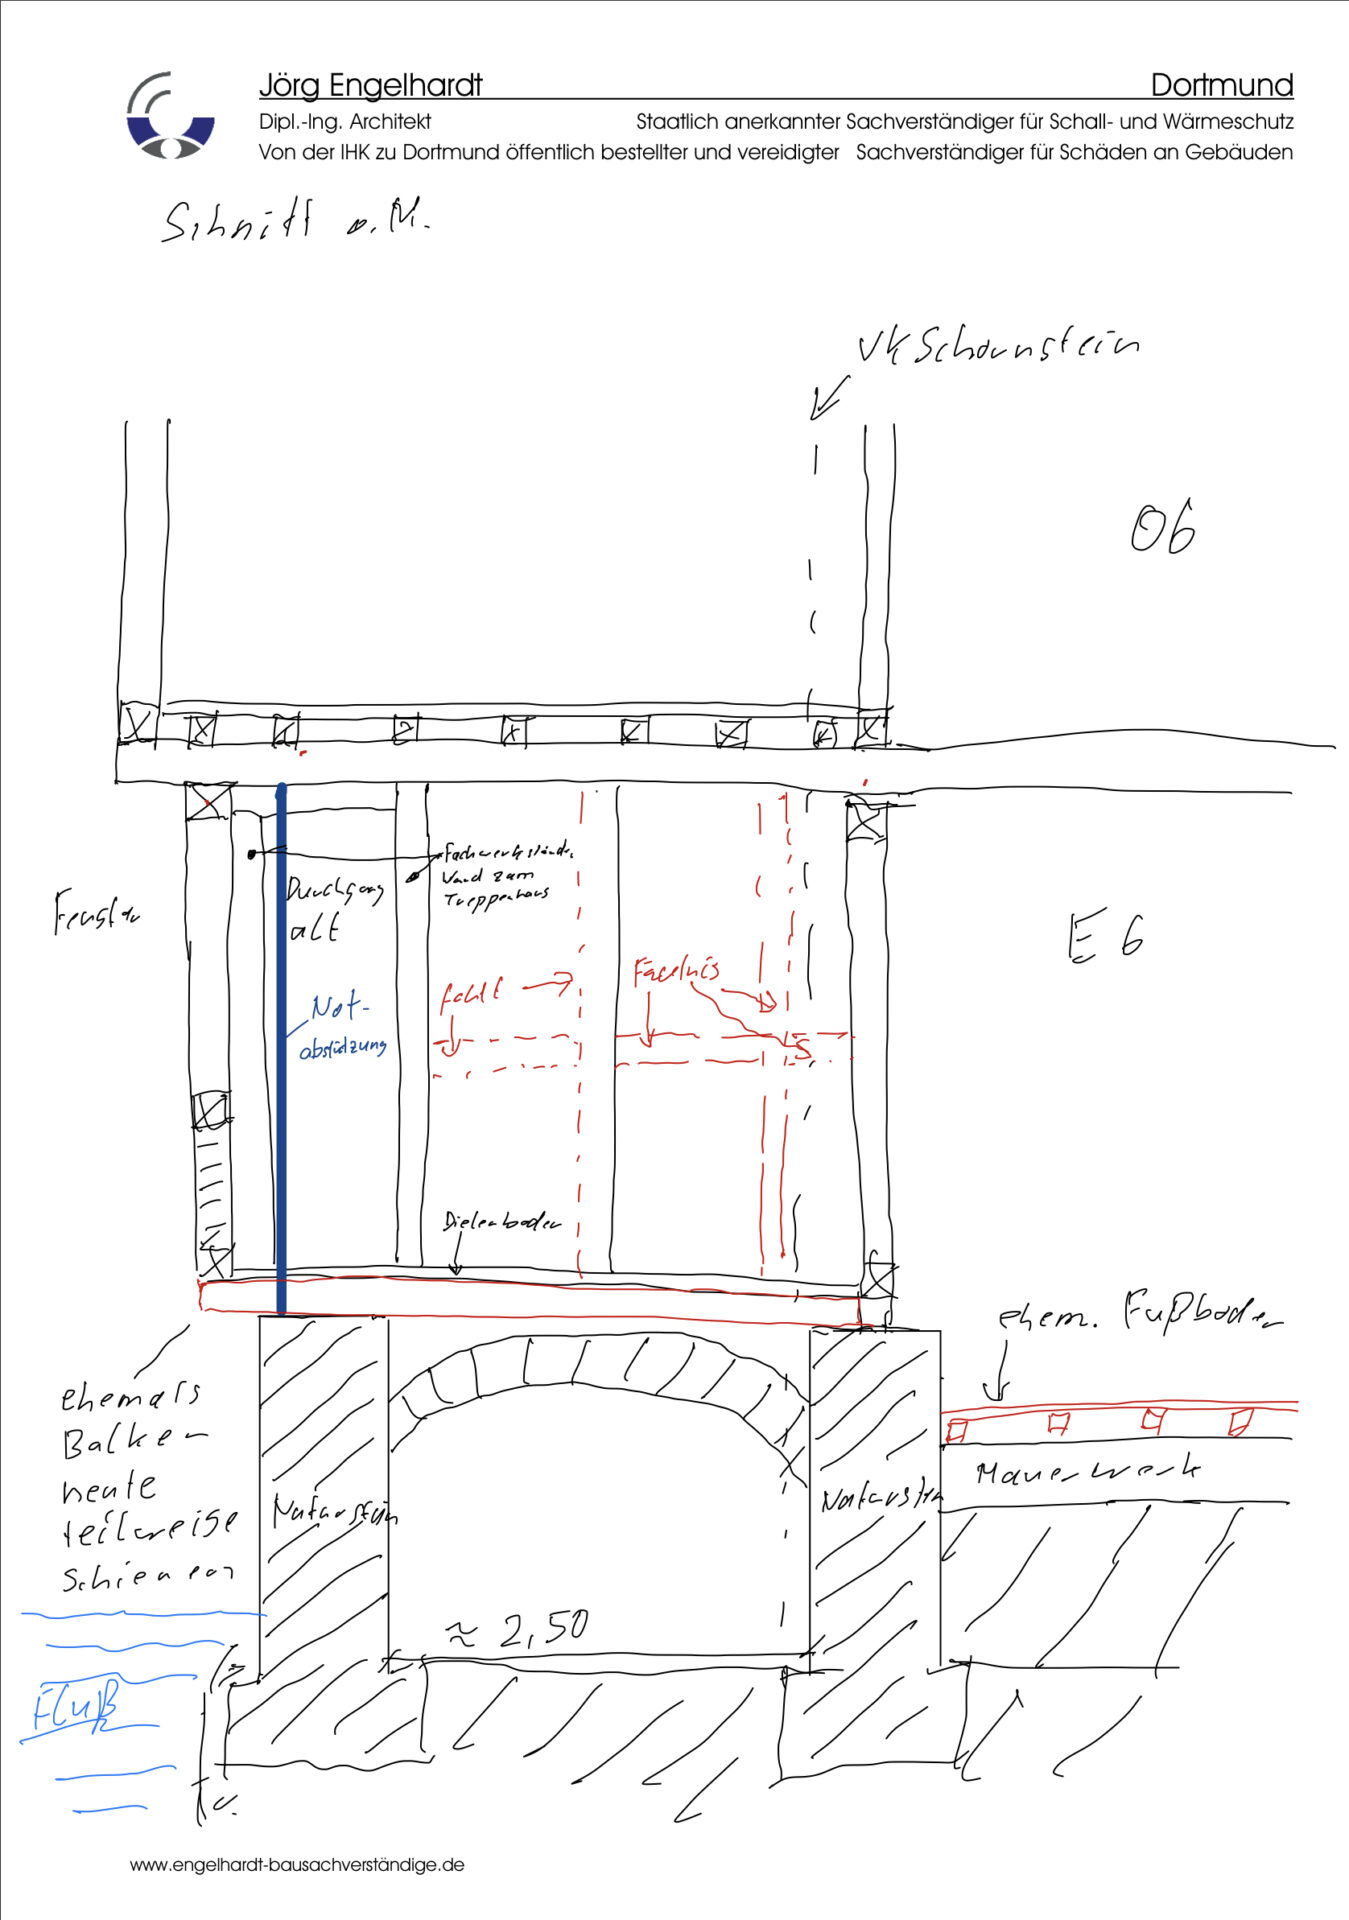 Jörg Engelhardt Dortmund
Dipl.-Ing. Architekt Staatlich anerkannter Sachverständiger für Schall- und Wärmeschutz
Von der IHK zu Dortmund öffentlich bestellter und vereidigter Sachverständiger für Schäden an Gebäuden
Schnitt o.M.
VK Schornstein
O6
Fachwerkstände
Wand zum
Treppenhaus
Durchgang
alt
Fenster
E 6
fehlt
Fäulnis
Not-
abstützung
Dielenboden
ehem. Fußboden
ehemals
Balken
heute
teilweise
Schienen
Mauerwerk
Naturstein
Naturstein
≈ 2,50
Fluß
www.engelhardt-bausachverständige.de